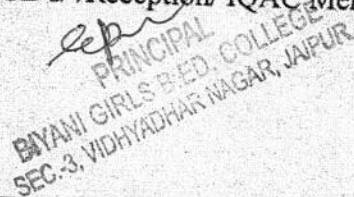 Reception/ IQAC Mem
PRINCIPAL
BIYANI GIRLS B.ED. COLLEGE
SEC.-3, VIDHYADHAR NAGAR, JAIPUR